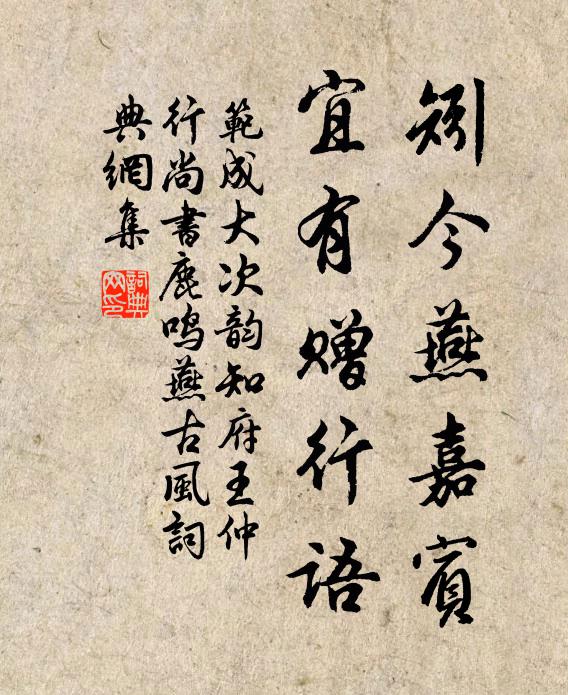 矧今燕嘉賓
宜有贈行語
範成大次韵知府王仲
行尚書鹿鳴燕古風詞
典網集
詞典
网印